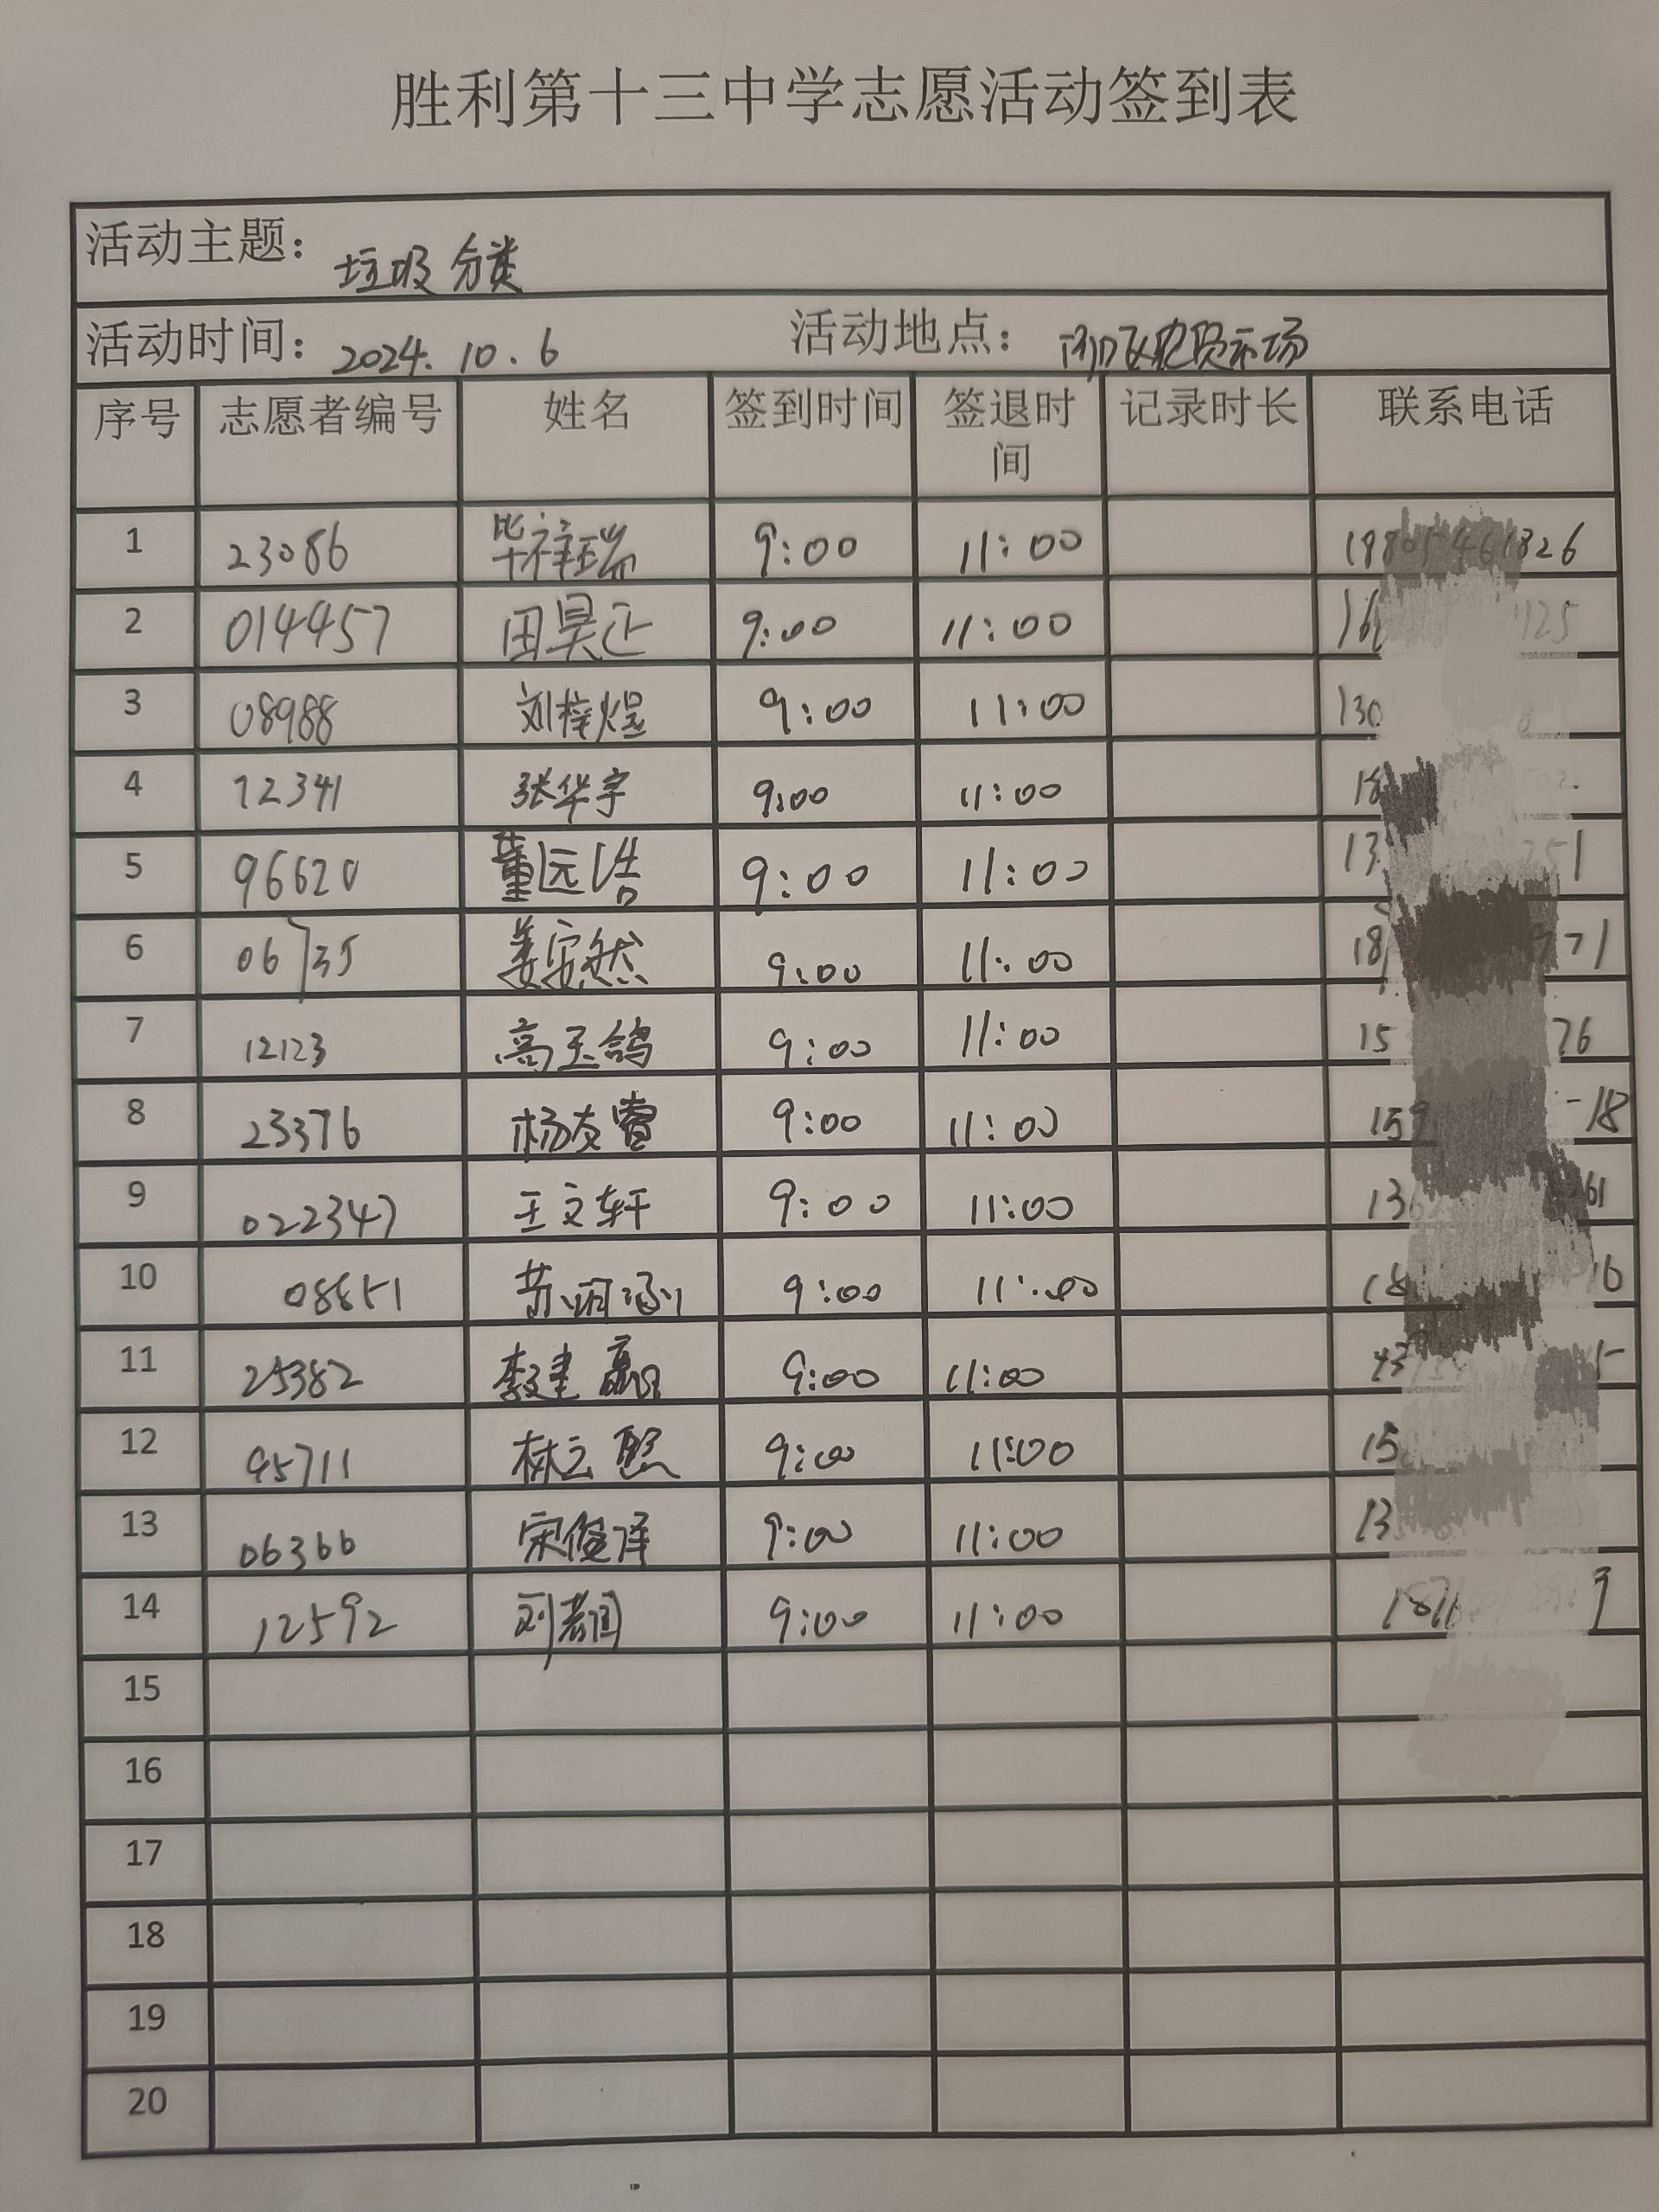 胜利第十三中学志愿活动签到表
活动主题：垃圾分类
活动时间：2024.10.6 活动地点：农贸市场
序号 志愿者编号 姓名 签到时间 签退时间 记录时长 联系电话
1 23086 毕祥瑞 9:00 11:00
2 014457 田昊正 9:00 11:00
3 08988 刘梓煜 9:00 11:00
4 12341 张华宇 9:00 11:00
5 96620 董远浩 9:00 11:00
6 06735 姜安然 9:00 11:00
7 12123 高玉鸽 9:00 11:00
8 23376 杨友 9:00 11:00
9 022347 王文轩 9:00 11:00
10 08851 苏 9:00 11:00
11 25382 李建赢 9:00 11:00
12 95711 林云熙 9:00 11:00
13 06366 宋俊泽 9:00 11:00
14 12592 刘 9:00 11:00
15
16
17
18
19
20